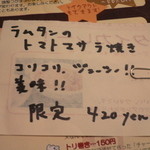 ラムタンの
トマトマサラ焼き
コリコリ、ジューシー!!
美味!!
限定 420yen
トリ巻き…150円